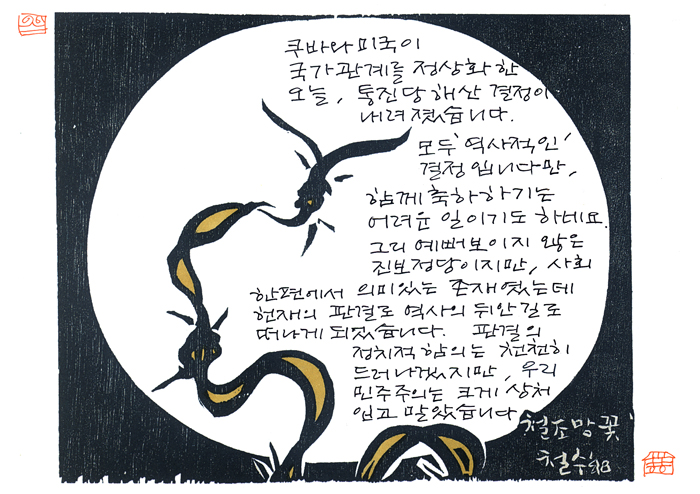 쿠바와 미국이
국가관계를 정상화 한
오늘, 통진당 해산 결정이
내려졌습니다.
모두 '역사적인'
결정입니다만,
함께 축하하기는
어려운 일이기도 하네요.
그리 예뻐보이지 않은
진보정당이지만, 사회
한편에서 의미있는 존재였는데
헌재의 판결로 역사의 뒤안길로
떠나게 되었습니다. 판결의
정치적 함의는 천천히
드러나겠지만, 우리
민주주의는 크게 상처
입고 말았습니다
철조망 꽃
철수 '98